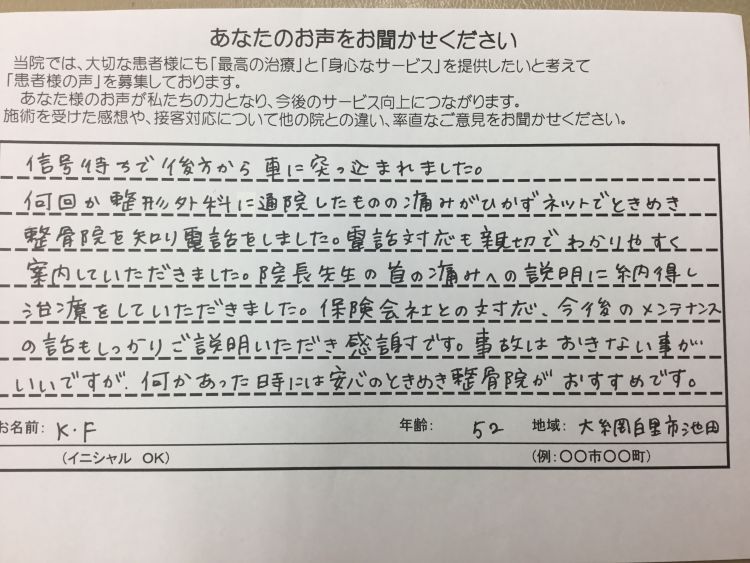 あなたのお声をお聞かせください
当院では、大切な患者様にも「最高の治療」と「身心なサービス」を提供したいと考えて
「患者様の声」を募集しております。
あなた様のお声が私たちの力となり、今後のサービス向上につながります。
施術を受けた感想や、接客対応について他の院との違い、率直なご意見をお聞かせください。
信号待ちで後方から車に突っ込まれました。
何回か整形外科に通院したものの痛みがひかずネットでときめき
整骨院を知り電話をしました。電話対応も親切でわかりやすく
案内していただきました。院長先生の首の痛みへの説明に納得し
治療をしていただきました。保険会社との対応、今後のメンテナンス
の話もしっかりご説明いただき感謝です。事故はおきない事が
いいですが、何かあった時には安心のときめき整骨院がおすすめです。
お名前: K・F 年齢: 52 地域: 大網白里市池田
(イニシャル OK) (例:〇〇市〇〇町)